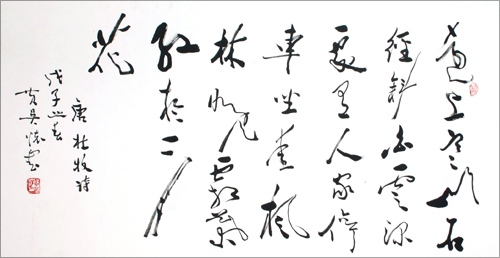 遠上寒山石
徑斜白雲深
處有人家停
車坐愛楓
林晚霜葉
紅於二月
花
唐杜牧詩
戊子